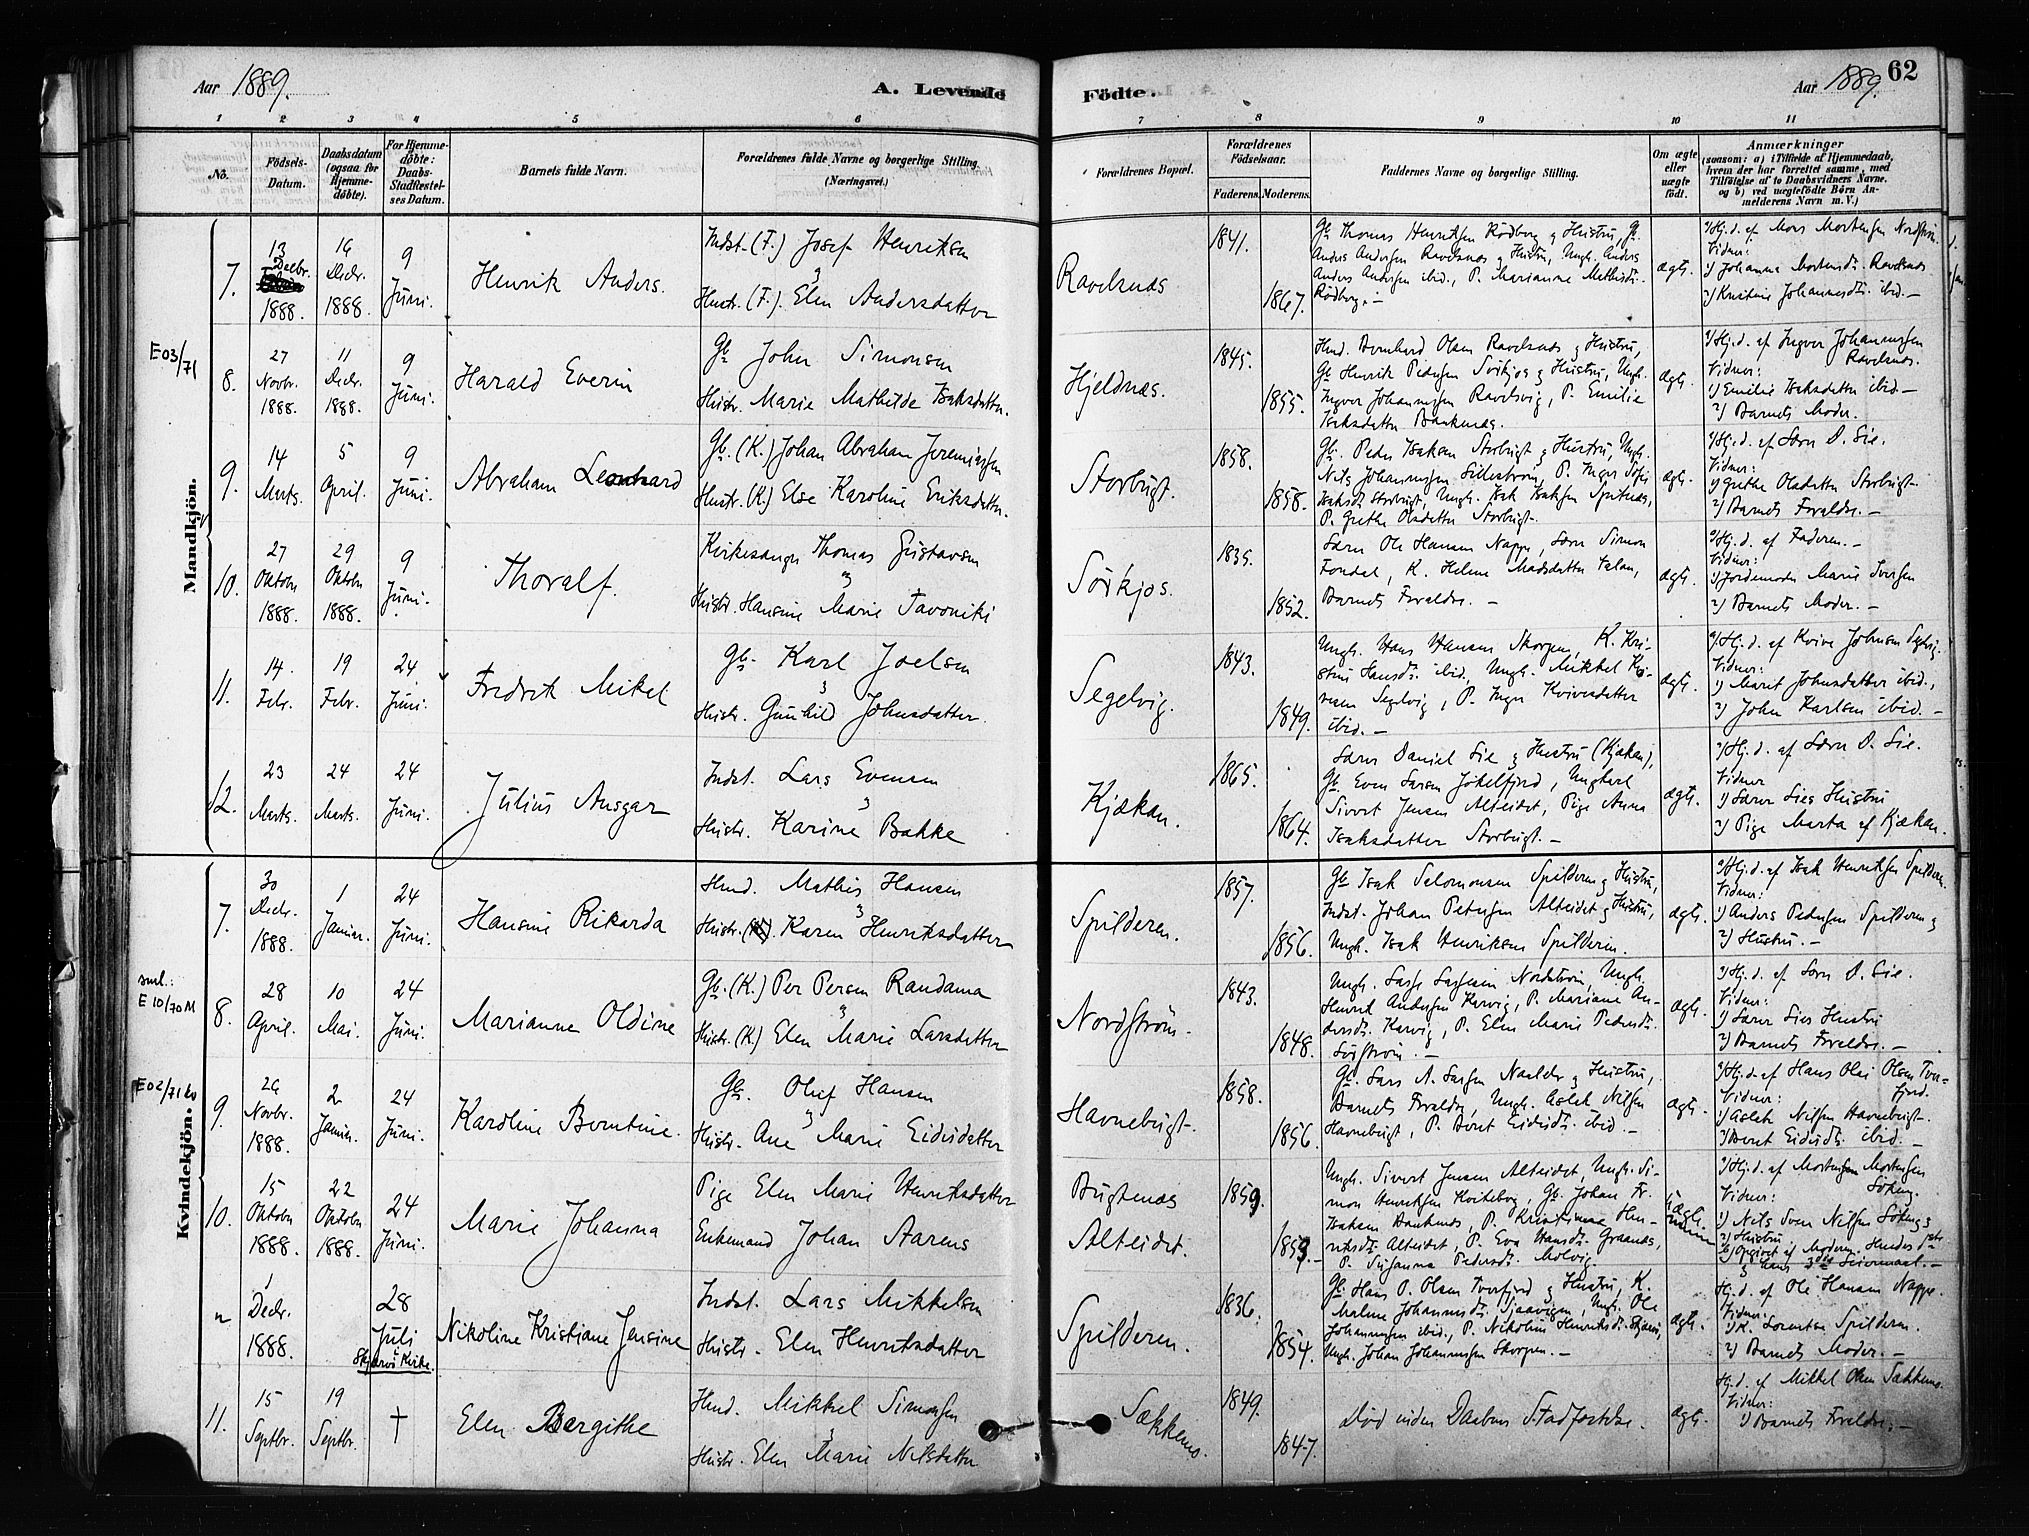 Aar 1889.
A. Levende Födte.
Aar 1889.
62
1 2 3 4 5 6 7 8 9 10 11
No.
Födsels-
Datum.
Daabsdatum
(ogsaa for
Hjemme-
döbte).
For Hjemme-
döbte:
Daabs-
Stadfæstel-
ses Datum.
Barnets fulde Navn.
Forældrenes fulde Navne og borgerlige Stilling.
(Næringsvei.)
Forældrenes Bopæl.
Forældrenes
Födselsaar.
Faderens. Moderens.
Faddernes Navne og borgerlige Stilling.
Om ægte
eller
uægte
födt.
Anmærkninger
(saasom: a) i Tilfælde af Hjemmedaab,
hvem der har forrettet samme, med
Tilföielse af to Daabsvidners Navne,
og b) ved uægtefödte Börn An-
melderens Navn m. V.)
Mandkjön.
7.
13
Decbr.
1888.
16
Decbr.
1888.
9
Juni.
Henrik Anders.
Indst. (F.) Josef Henriksen
Hustr. (F.) Elen Andersdatter
Ravelsnæs
1841.
1867.
Gb. Thomas Henriksen Rödberg og Hustru, Gb.
Anders Andersen Ravelsnæs og Hustru, Ungk. Anders
Anders Andersen ibid., P. Marianne Mathisdt.
Rödberg. —
ægte.
a) Hj. d. af Mons Mortensen Nordström.
Vidner:
1) Johanna Mortensdt. Ravelsnæs
2) Kristine Johannesdt. ibid. —
E 03/71
8.
27
Novbr.
1888.
11
Decbr.
1888.
9
Juni.
Harald Everin
Gb. John Simonsen
Hustr. Marie Mathilde Isaksdatter.
Hjeldnæs.
1845.
1855.
Hmd. Bernhard Olsen Ravelsnæs og Hustru,
Gb. Henrik Pedersen Sörkjos og Hustru, Ungk.
Ingver Johannessen Ravelsvig, P. Emilie
Isaksdatter Bankenæs.
ægte.
a) Hj. d. af Ingver Johannessen
Ravelsnæs.
Vidner:
1) Emilie Isaksdatter ibid —
2) Barnets Moder.
9.
14
Marts.
5
April.
9
Juni.
Abraham Leonhard
Gb. (K.) Johan Abraham Jeremiassen
Hustr. (K.) Else Karoline Eriksdatter.
Storbugt.
1858.
1858.
Gb. Peder Isaksen Storbugt og Hustru, Ungk.
Nils Johannessen
Isaksdt. Storbugt, Ungk. Isak Isaksen Spitnæs,
P. Grethe Olsdatter Storbugt.
ægte.
a) Hj. d. af Lærer D. Sie.
Vidner:
1) Grethe Olsdatter Storbugt
2) Barnets Forældre. —
10.
27
Oktober
1888.
29
Oktober
1888.
9
Juni.
Thoralf.
Kirkesanger Thomas Gustavsen
Hustr. Hansine Marie Tavoniki
Sörkjos.
1835.
1852.
Lærer Ole Hansen Nappe, Lærer Simon
K. Helene Madsdatter
Barnets Forældre. —
ægte.
a) Hj. d. af Faderen. —
Vidner:
1) Jordemoder Marie Iversen
2) Barnets Moder. —
11.
14
Febr.
19
Febr.
24
Juni.
Fredrik Mikel
Gb. Karl Joelsen
Hustr. Gunhild Johnsdatter.
Segelvig.
1843.
1849.
Ungk. Hans Hansen Skorpen, K. Kri-
stine Hansdt. ibid., Ungk. Mikkel
Segelvig, P. Inger Kvivesdatter
ibid. —
ægte.
a) Hj. d. af Kvive Johnsen Segelvig.
Vidner:
1) Marit Johnsdatter ibid.,
2) John Karlsen ibid. —
12.
23
Marts.
24
Marts.
24
Juni.
Julius Ansgar
Indst. Lars Evensen
Hustr. Karine Bakke
Kjækan.
1865.
1864.
Lærer Daniel Sie og Hustru (Kjækan),
Gb. Even Larsen Jökelfjord, Ungkarl
Sivert Jensen Alteidet, Pige Anna
Isaksdatter Storbugt. —
ægte.
a) Hj. d. af Lærer D. Sie.
Vidner
1) Lærer Sies Hustru
2) Pige Marta af Kjækan.
Kvindekjön.
7.
30
Decbr.
1888.
1
Januar.
24
Juni.
Hansine Rikarda
Hmd. Mathis Hansen
Hustr. Karen Henriksdatter
Spilderen.
1857.
1856.
Gb. Isak Salomonsen Spilderen og Hustru,
Indst. Johan Petersen Alteidet og Hustru,
Ungk. Isak Henriksen Spilderen.
ægte.
a) Hj. d. af Isak Henriksen Spilderen.
Vidner:
1) Anders Pedersen Spilderen og
2) Hustru. —
sml.:
E 10/70 M
8.
28
April.
10
Mai.
24
Juni.
Marianne Oldine
Gb. (K.) Per Persen Randama
Hustr. (K.) Elen Marie Larsdatter
Nordström.
1843.
1848.
Ungk. Lasse Lassesen Nordström, Ungk.
Henrik Andersen Karvig, P. Mariane An-
dersdt. Karvig, P. Elen Marie Pedersdt.
ægte.
a) Hj. d. af Lærer D. Sie.
Vidner:
1) Lærer Sies Hustru
2) Barnets Forældre. —
E 02/71
9.
26
Novbr.
1888.
2
Januar.
24
Juni.
Karoline Berntine.
Gb. Oluf Hansen
Hustr. Ane Marie Eidisdatter
Havnebugt.
1858.
1856.
Gb. Lars A. Larsen og Hustru,
Barnets Forældre, Ungk. Aslak Nilsen
Havnebugt, P. Beret Eidisdt. ibid. —
ægte.
a) Hj. d. af Hans Olai Olsen Tver-
fjord.
Vidner:
1) Aslak Nilsen Havnebugt —
2) Beret Eidisdt. ibid. —
10.
15
Oktober
1888.
22
Oktober
1888.
24
Juni.
Marie Johanna
Pige Elen Marie Henriksdatter
Enkemand Johan Aarens
Bugtenæs
Alteidet.
1859.
1859.
Ungk. Sivert Jensen Alteidet, Ungk. Si-
mon Henriksen Kviteberg, Gb. Johan Fr.
Isaksen Banknæs, P. Kristianna Hen-
riksdt. Alteidet, P. Eva Hansdt. Graanæs,
P. Susanna Pedersdt. Molvig.
uægte.
a) Hj. d. af Mortensen Mortensen
Vidner:
1) Nils Sven Nilsen
2) Hustru
b) Opgivet af Moderen. Hendes 1ste
og hans 3die Leiermaal. —
n
1
Decbr.
1888.
28
Juli
Skjervö Kirke.
Nikoline Kristiane Jensine
Indst. Lars Mikkelsen
Hustr. Elen Henriksdatter
Spilderen.
1836.
1854.
Gb. Hans O. Olsen Tverfjord og Hustru, K.
Malene Johannesdt. Ungk. Ole
Johannessen ibid., P. Nikoline Henriksdt.
Ungk. Johan Johannessen Skorpen. —
ægte.
Hj. d. af Ole Hansen Nappe.
Vidner:
1) K. Lorentse Spilderen.
2) Barnets Moder. —
11.
15
Septbr.
19
Septbr.
†
Elen Bergithe
Hmd. Mikkel Simonsen
Hustr. Elen Marie Nilsdatter
Sækkemo.
1849.
1847.
Död inden Daabens Stadfæstelse.
ægte.
Hj. d. af Mikkel Olsen Sækkemo.
Vidner:
1) Barnets Forældre. —